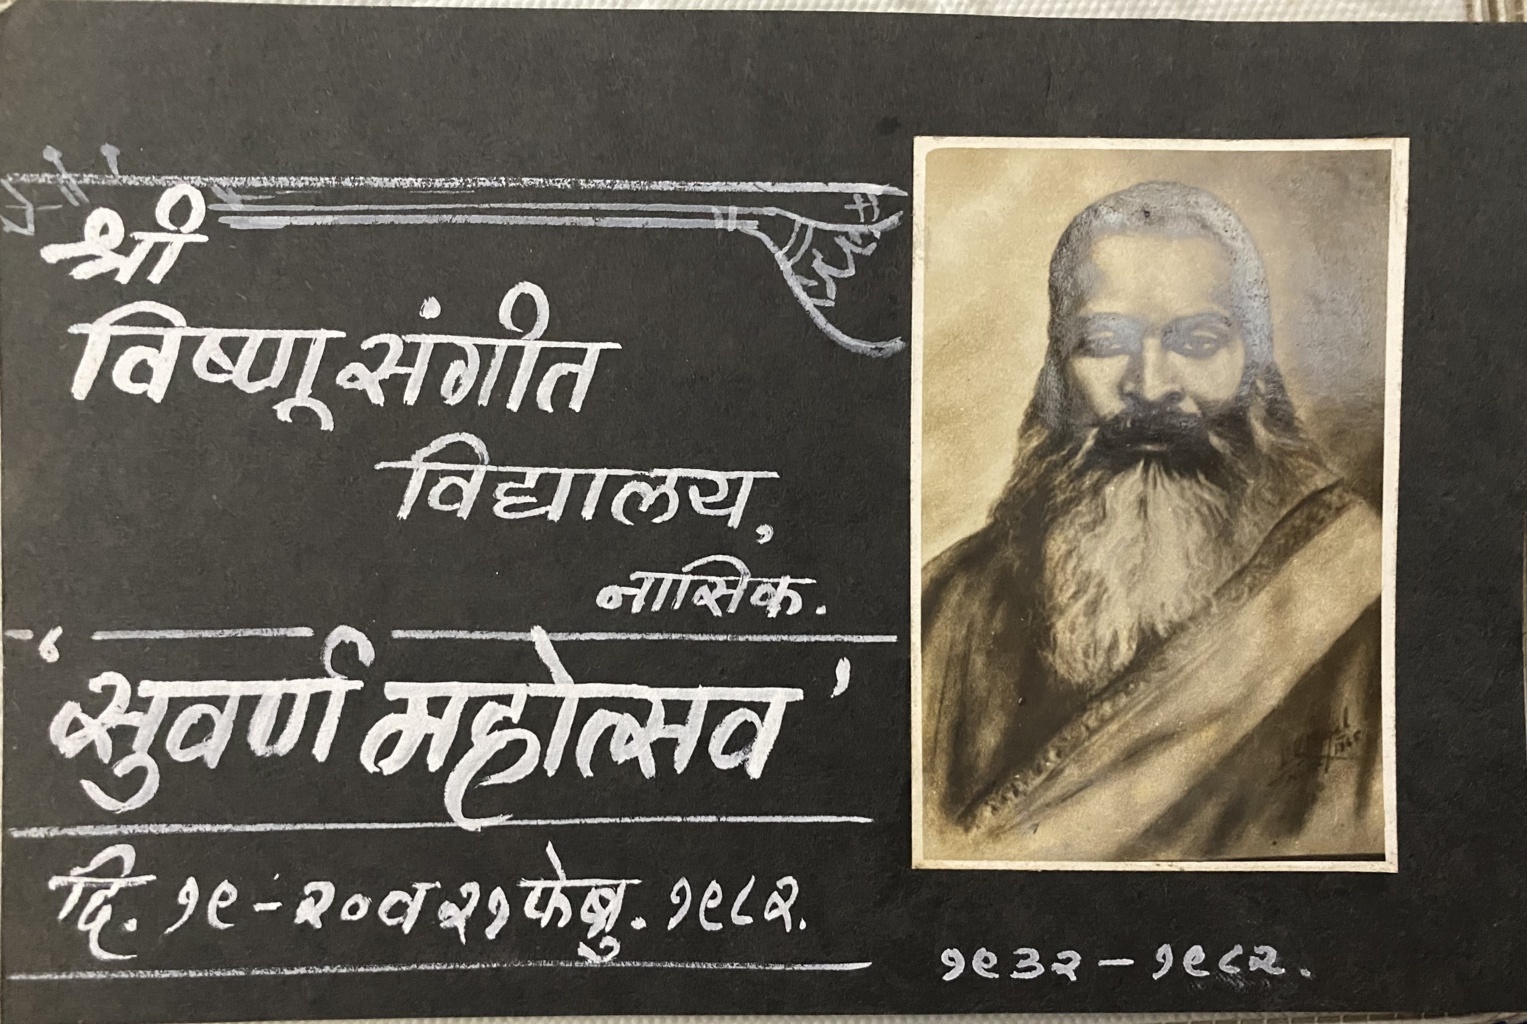 श्री
विष्णू संगीत
विद्यालय,
नासिक.
'सुवर्ण महोत्सव'
दि. १९-२० व २१ फेब्रु. १९८२.
१९३२ - १९८२.